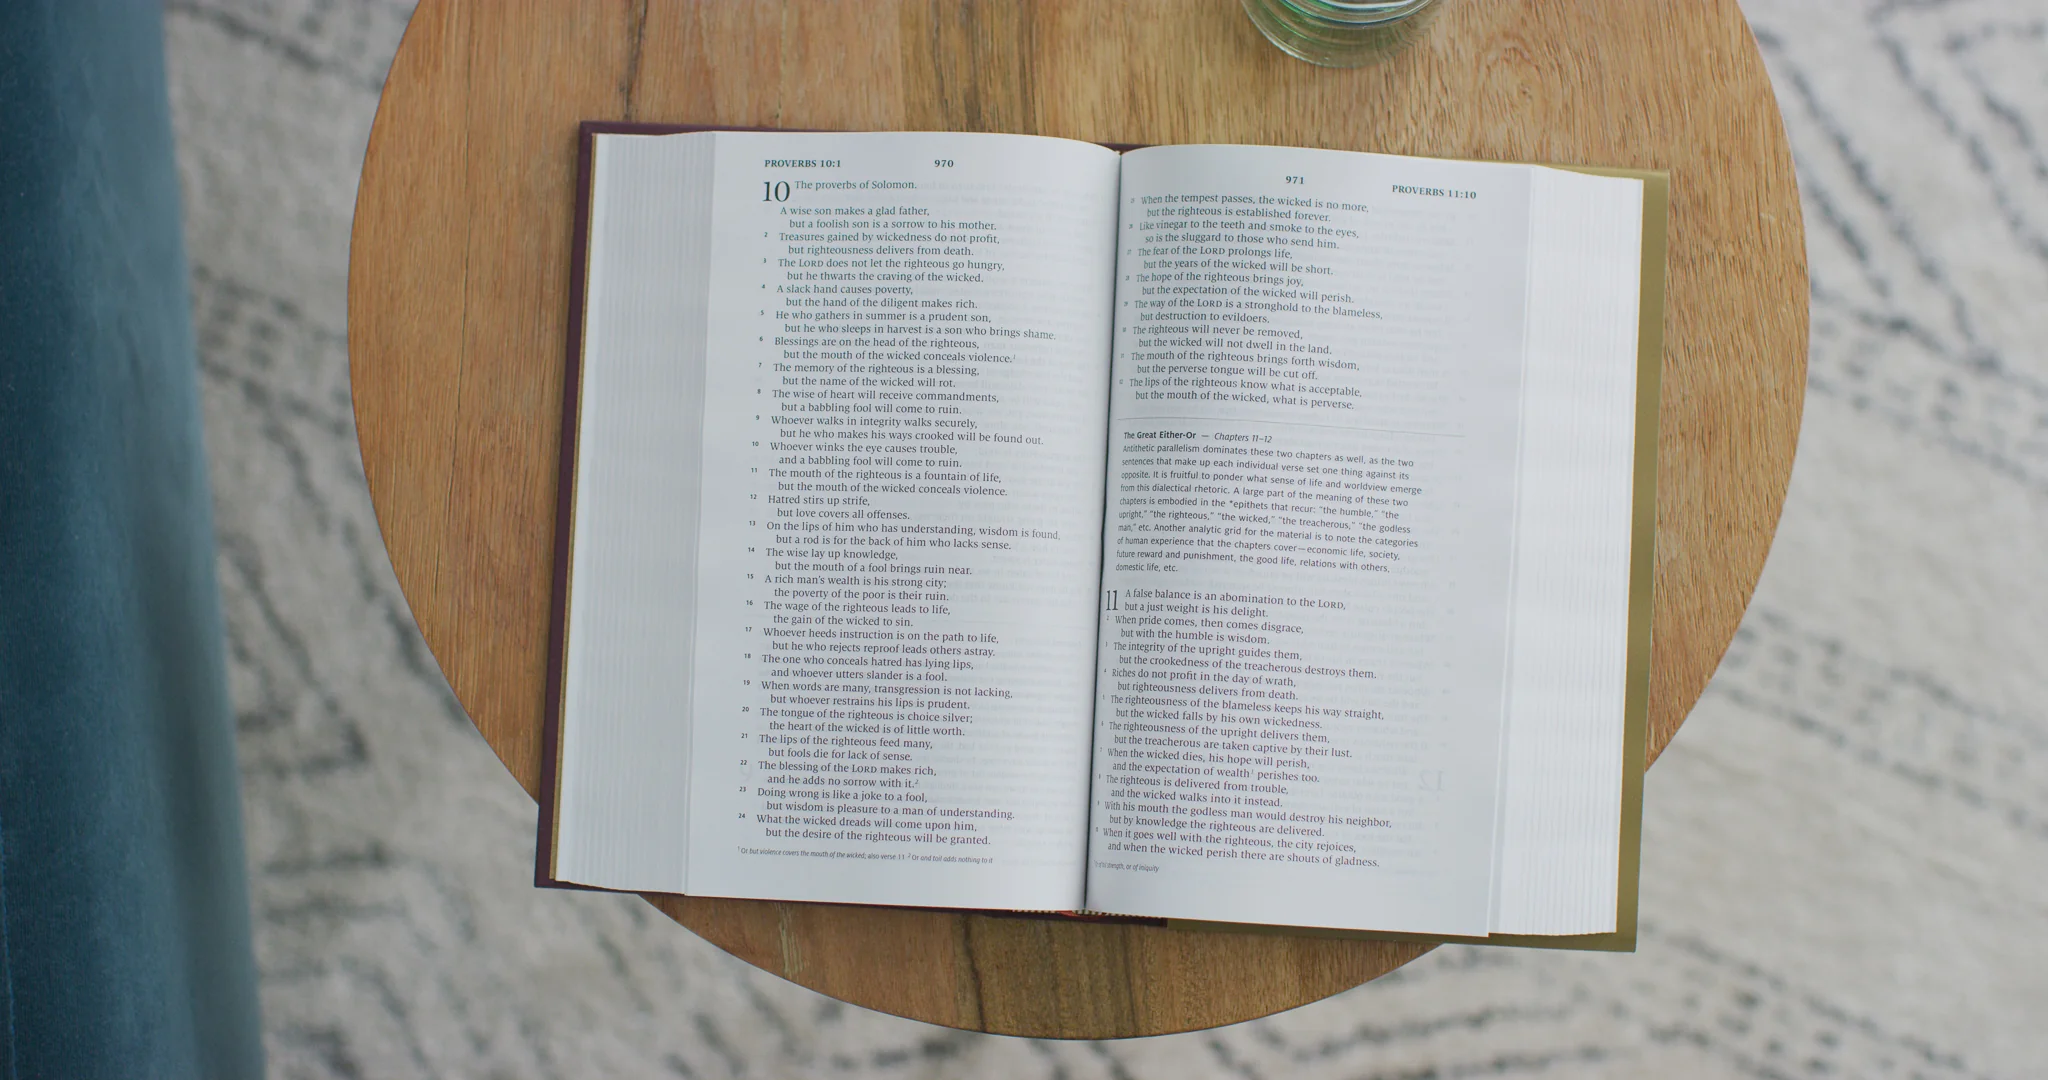 PROVERBS 10:1 970
10 The proverbs of Solomon.
A wise son makes a glad father,
but a foolish son is a sorrow to his mother.
2 Treasures gained by wickedness do not profit,
but righteousness delivers from death.
3 The LORD does not let the righteous go hungry,
but he thwarts the craving of the wicked.
4 A slack hand causes poverty,
but the hand of the diligent makes rich.
5 He who gathers in summer is a prudent son,
but he who sleeps in harvest is a son who brings shame.
6 Blessings are on the head of the righteous,
but the mouth of the wicked conceals violence.1
7 The memory of the righteous is a blessing,
but the name of the wicked will rot.
8 The wise of heart will receive commandments,
but a babbling fool will come to ruin.
9 Whoever walks in integrity walks securely,
but he who makes his ways crooked will be found out.
10 Whoever winks the eye causes trouble,
and a babbling fool will come to ruin.
11 The mouth of the righteous is a fountain of life,
but the mouth of the wicked conceals violence.
12 Hatred stirs up strife,
but love covers all offenses.
13 On the lips of him who has understanding, wisdom is found,
but a rod is for the back of him who lacks sense.
14 The wise lay up knowledge,
but the mouth of a fool brings ruin near.
15 A rich man's wealth is his strong city;
the poverty of the poor is their ruin.
16 The wage of the righteous leads to life,
the gain of the wicked to sin.
17 Whoever heeds instruction is on the path to life,
but he who rejects reproof leads others astray.
18 The one who conceals hatred has lying lips,
and whoever utters slander is a fool.
19 When words are many, transgression is not lacking,
but whoever restrains his lips is prudent.
20 The tongue of the righteous is choice silver;
the heart of the wicked is of little worth.
21 The lips of the righteous feed many,
but fools die for lack of sense.
22 The blessing of the LORD makes rich,
and he adds no sorrow with it.2
23 Doing wrong is like a joke to a fool,
but wisdom is pleasure to a man of understanding.
24 What the wicked dreads will come upon him,
but the desire of the righteous will be granted.
1 Or but violence covers the mouth of the wicked; also verse 11 2 Or and toil adds nothing to it
971 PROVERBS 11:10
When the tempest passes, the wicked is no more,
but the righteous is established forever.
Like vinegar to the teeth and smoke to the eyes,
so is the sluggard to those who send him.
The fear of the LORD prolongs life,
but the years of the wicked will be short.
The hope of the righteous brings joy,
but the expectation of the wicked will perish.
The way of the LORD is a stronghold to the blameless,
but destruction to evildoers.
The righteous will never be removed,
but the wicked will not dwell in the land.
The mouth of the righteous brings forth wisdom,
but the perverse tongue will be cut off.
The lips of the righteous know what is acceptable,
but the mouth of the wicked, what is perverse.
The Great Either-Or — Chapters 11–12
Antithetic parallelism dominates these two chapters as well, as the two
sentences that make up each individual verse set one thing against its
opposite. It is fruitful to ponder what sense of life and worldview emerge
from this dialectical rhetoric. A large part of the meaning of these two
chapters is embodied in the *epithets that recur: "the humble," "the
upright," "the righteous," "the wicked," "the treacherous," "the godless
man," etc. Another analytic grid for the material is to note the categories
of human experience that the chapters cover—economic life, society,
future reward and punishment, the good life, relations with others,
domestic life, etc.
11 A false balance is an abomination to the LORD,
but a just weight is his delight.
When pride comes, then comes disgrace,
but with the humble is wisdom.
The integrity of the upright guides them,
but the crookedness of the treacherous destroys them.
Riches do not profit in the day of wrath,
but righteousness delivers from death.
The righteousness of the blameless keeps his way straight,
but the wicked falls by his own wickedness.
The righteousness of the upright delivers them,
but the treacherous are taken captive by their lust.
When the wicked dies, his hope will perish,
and the expectation of wealth1 perishes too.
The righteous is delivered from trouble,
and the wicked walks into it instead.
With his mouth the godless man would destroy his neighbor,
but by knowledge the righteous are delivered.
When it goes well with the righteous, the city rejoices,
and when the wicked perish there are shouts of gladness.
strength, or of iniquity